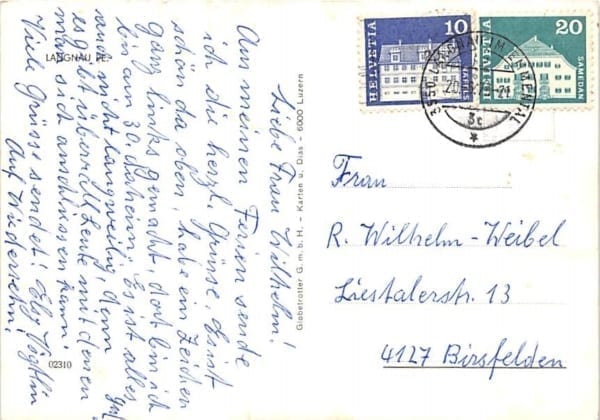 LANGNAU I.E.
Liebe Frau Wilhelm!
Aus meinen Ferien sende
ich die herzl. Grüsse. Es ist
schön da oben, habe ein Zeichen
ganz links gemacht, dort bin ich
bin am 30. daheim. Es ist alles gut
und nicht langweilig, denn
es gibt überall Leute mit denen
man sich anschliessen kann.
Viele Grüsse sendet: Elsy Vögtlin
Auf Wiedersehn!
02310
Globetrotter G. m. b. H. – Karten u. Dias – 6000 Luzern
HELVETIA
10
HELVETIA
20
SAMEDAN
3550 LANGNAU IM EMMENTAL
3c
Frau
R. Wilhelm-Weibel
Liestalerstr. 13
4127 Birsfelden